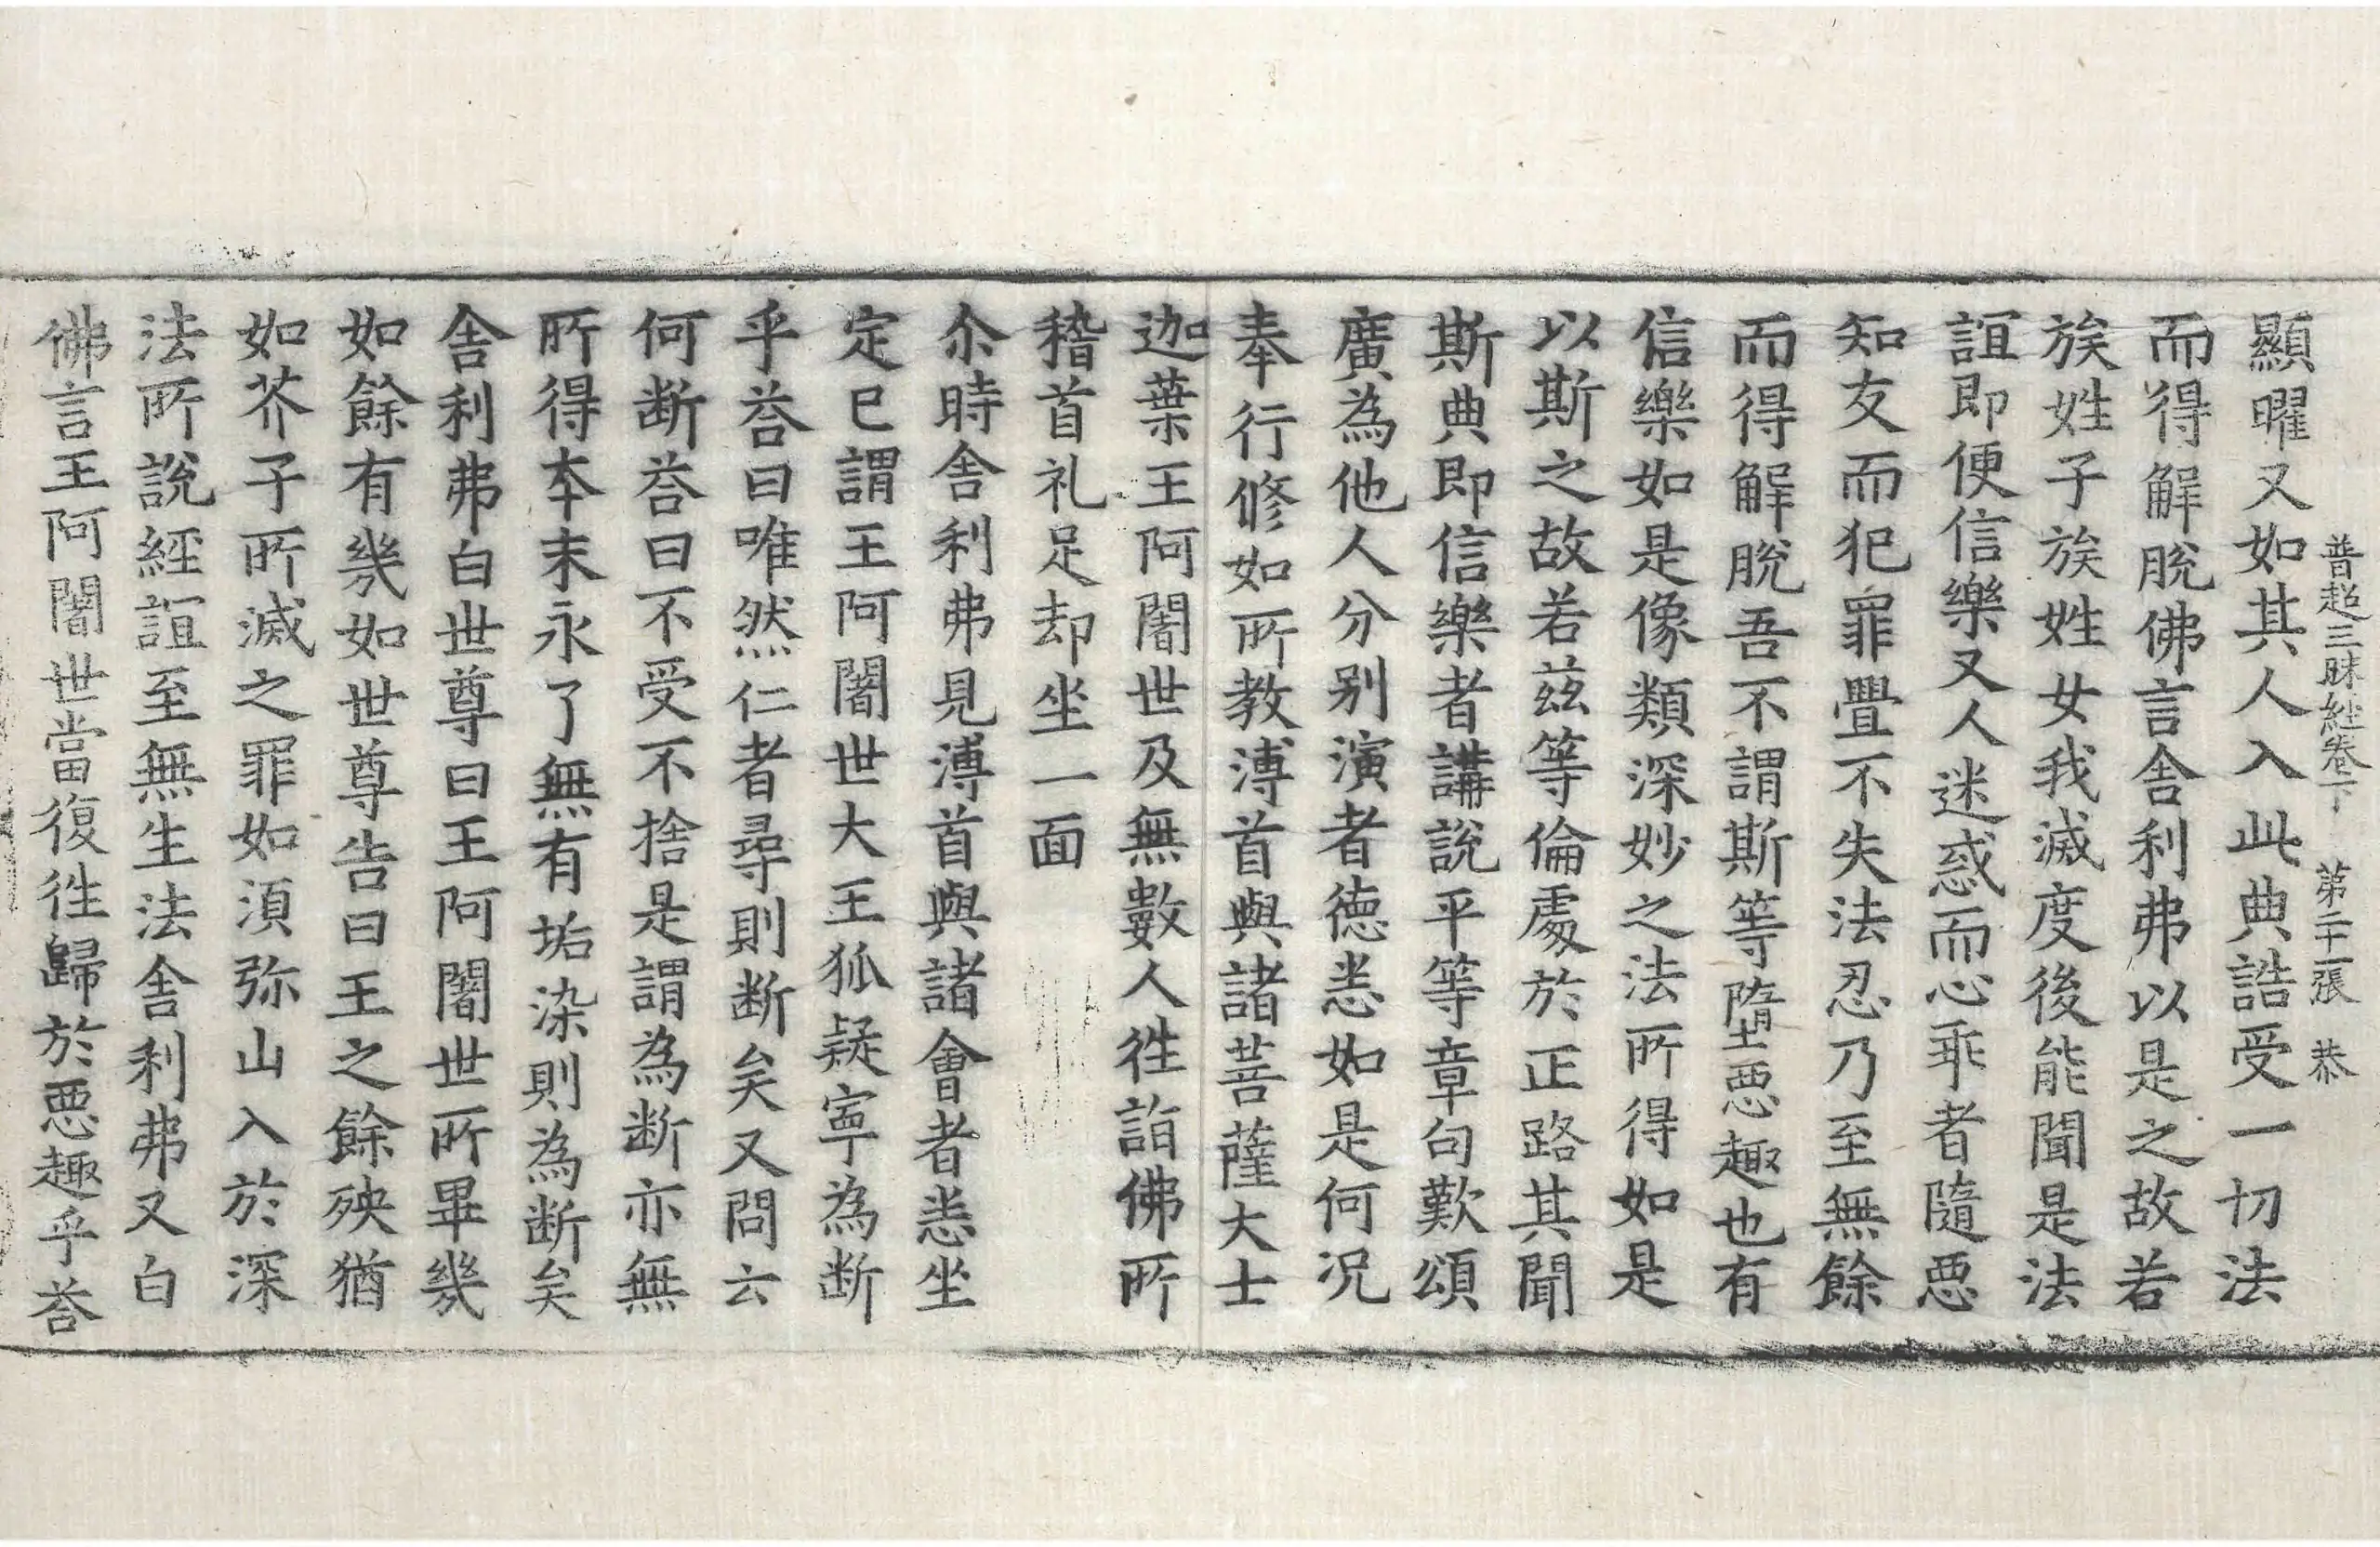 普超三昧經卷下　第二十一張　恭
顯曜又如其人入此典誥受一切法
而得解脫佛言舍利弗以是之故若
族姓子族姓女我滅度後能聞是法
誼即便信樂又人迷惑而心乖者隨惡
知友而犯罪舋不失法忍乃至無餘
而得解脫吾不謂斯等墮惡趣也有
信樂如是像類深妙之法所得如是
以斯之故若茲等倫處於正路其聞
斯典即信樂者講說平等章句歎頌
廣為他人分別演者德恙如是何況
奉行修如所教溥首與諸菩薩大士
迦葉王阿闍世及無數人徃詣佛所
稽首礼足却坐一面
尒時舍利弗見溥首與諸會者悉坐
定已謂王阿闍世大王狐疑寧為断
乎荅曰唯然仁者尋則断矣又問云
何断荅曰不受不捨是謂為断亦無
所得本末永了無有垢染則為断矣
舍利弗白世尊曰王阿闍世所畢幾
如餘有幾如世尊告曰王之餘殃猶
如芥子所滅之罪如湏弥山入於深
法所說經誼至無生法舍利弗又白
佛言王阿闍世當復徃歸於惡趣乎荅